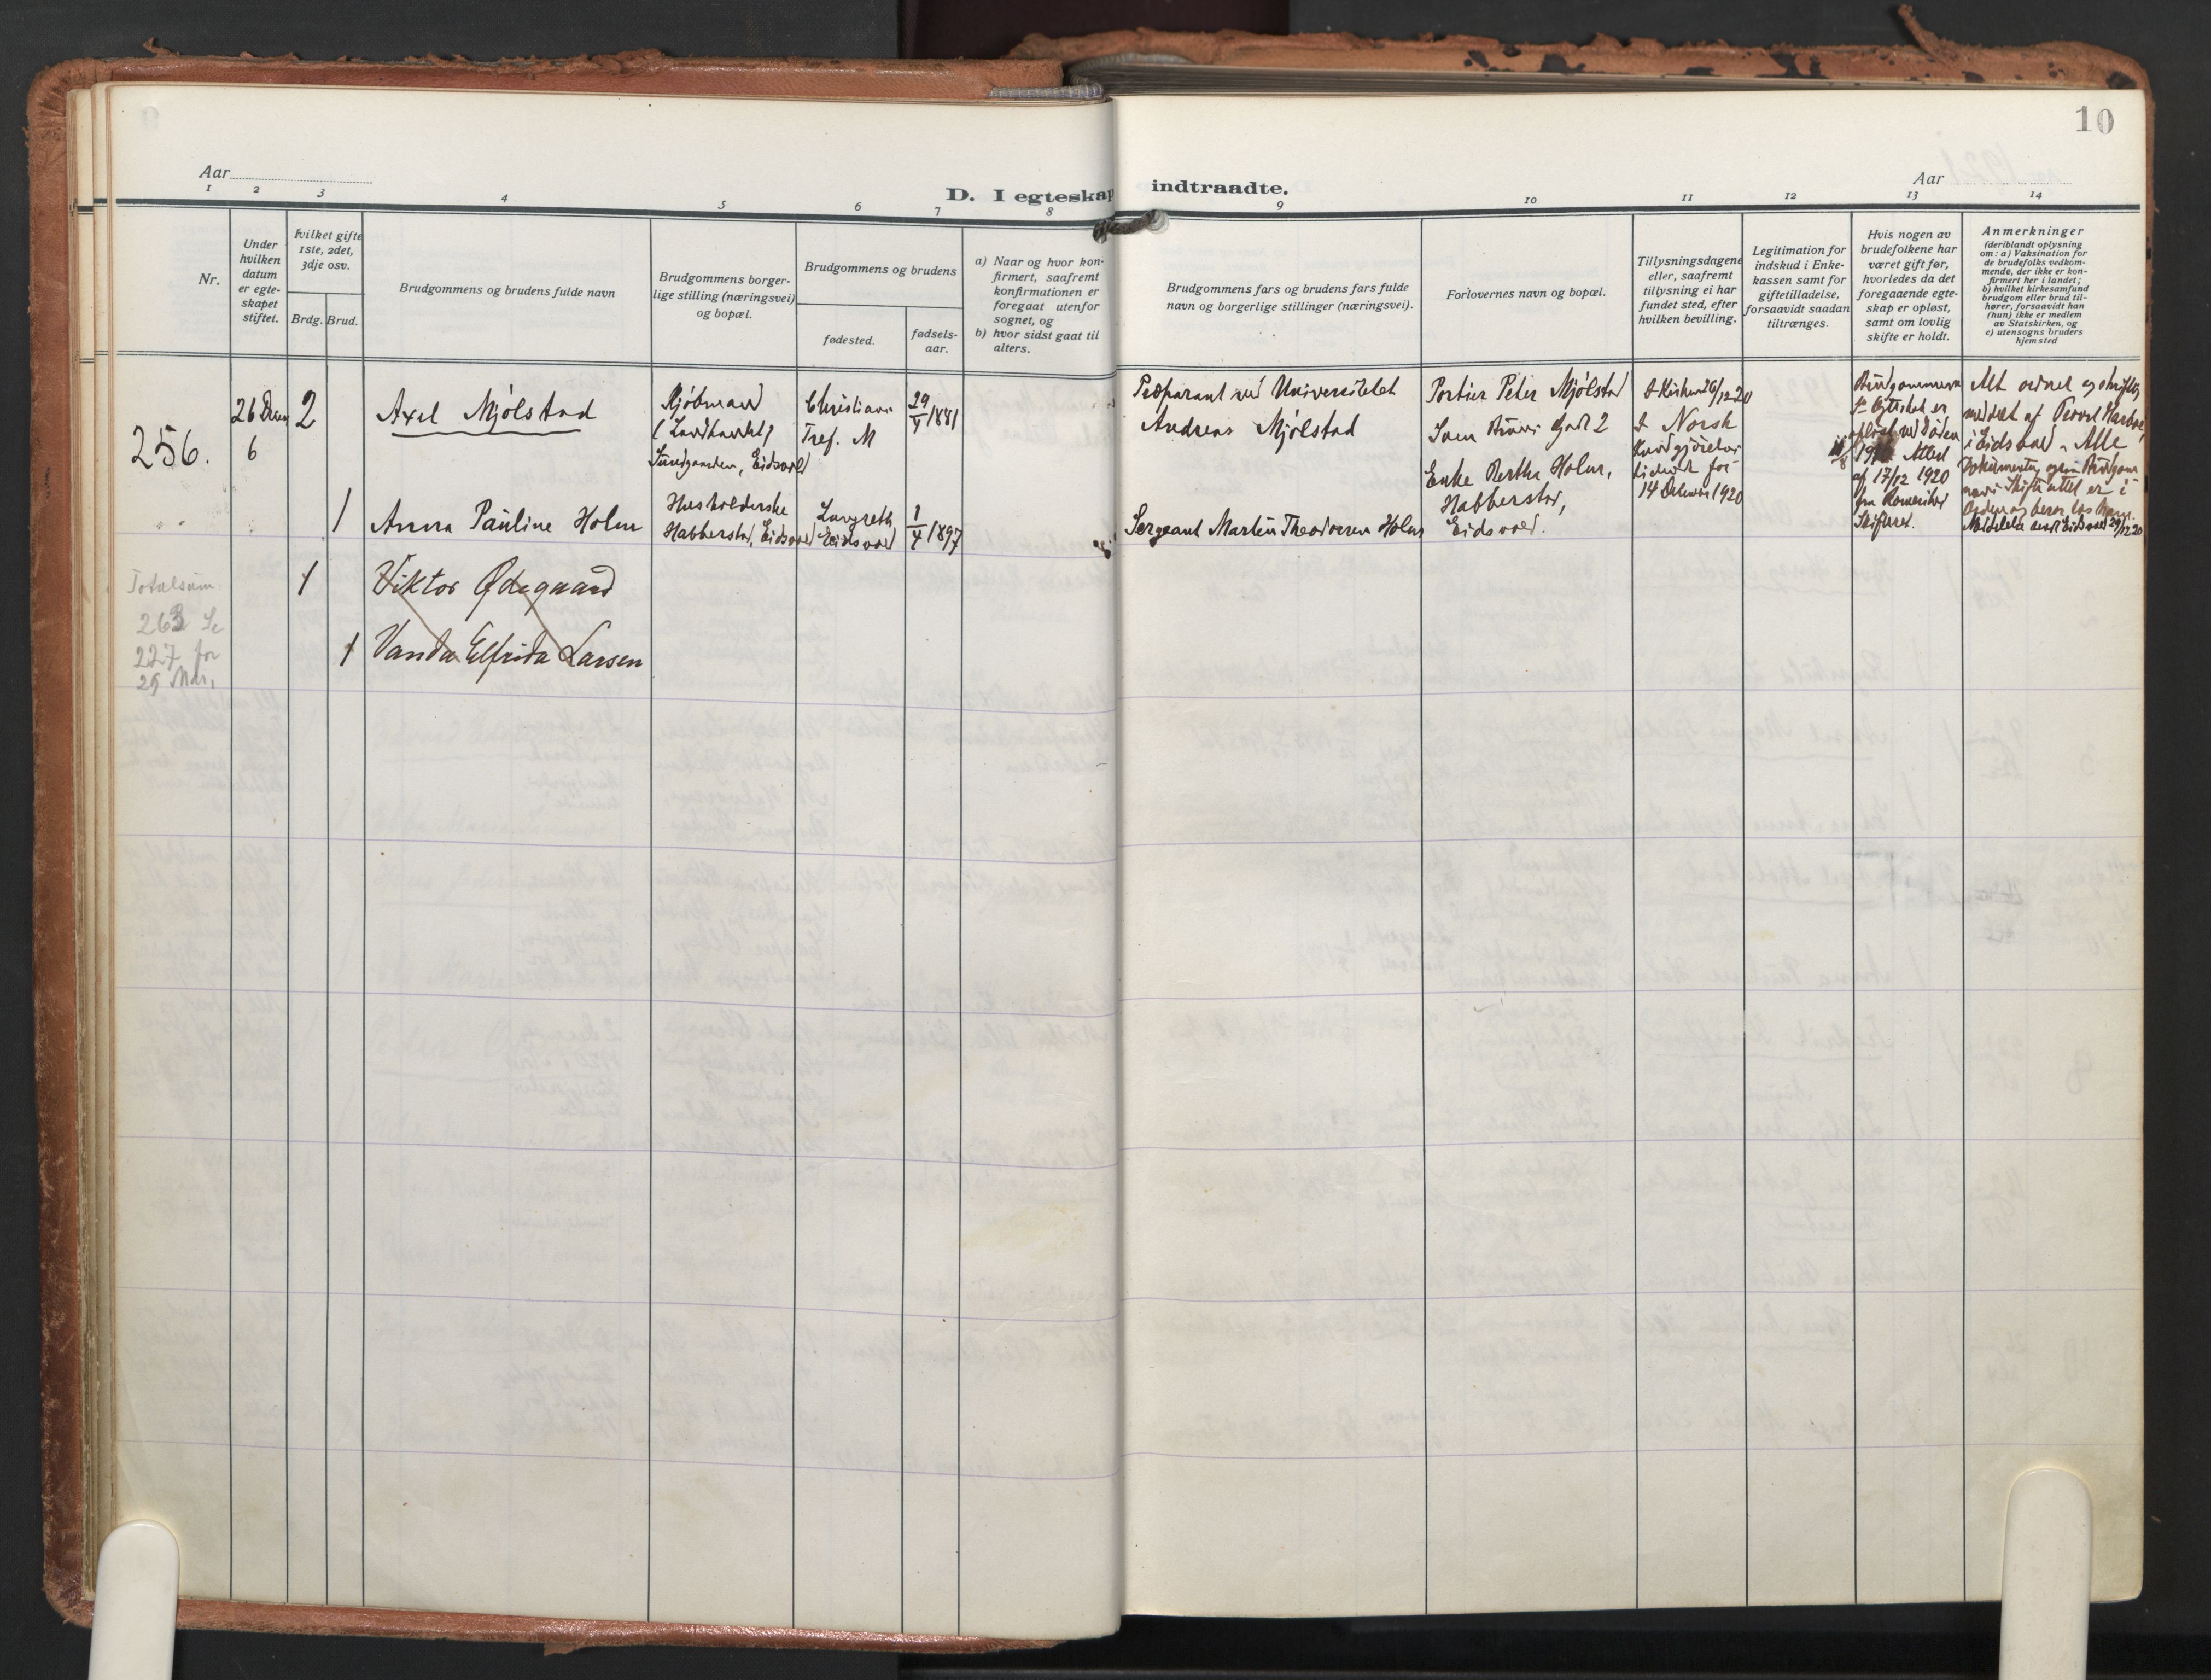 10
Aar
D. I egteskap indtraadte.
Aar
1 2 3 4 5 6 7 8 9 10 11 12 13 14
Nr.
Under
hvilken
datum
er egte-
skapet
stiftet.
Hvilket gifte
1ste, 2det,
3dje osv.
Brdg. Brud.
Brudgommens og brudens fulde navn
Brudgommens borger-
lige stilling (næringsvei)
og bopæl.
Brudgommens og brudens
fødested.
fødsels-
aar.
a) Naar og hvor kon-
firmert, saafremt
konfirmationen er
foregaat utenfor
sognet, og
b) hvor sidst gaat til
alters.
Brudgommens fars og brudens fars fulde
navn og borgerlige stillinger (næringsvei).
Forlovernes navn og bopæl.
Tillysningsdagene
eller, saafremt
tillysning ei har
fundet sted, efter
hvilken bevilling.
Legitimation for
indskud i Enke-
kassen samt for
giftetilladelse,
forsaavidt saadan
tiltrænges.
Hvis nogen av
brudefolkene har
været gift før,
hvorledes da det
foregaaende egte-
skap er opløst,
samt om lovlig
skifte er holdt.
Anmerkninger
(deriblandt oplysning
om: a) Vaksination for
de brudefolks vedkom-
mende, der ikke er kon-
firmert her i landet;
b) hvilket kirkesamfund
brudgom eller brud til-
hører, forsaavidt han
(hun) ikke er medlem
av Statskirken, og
c) utensogns bruders
hjemsted
256.
26
6
2
Axel Mjølstad
Kjøbmand
(Landhandel)
Sundgaarden, Eidsvold
Christiania
Tref. M
29/5 1881
Præparant ved Universitetet
Andreas Mjølstad
Portier Peter Mjølstad
Gade 2
Enke Bertha Holm,
Habberstad,
Eidsvold.
I Kirken 26/12 20
I Norsk
Kundgjørelses
tidende for
14 December 1920
Brudgommens
1ste Egteskab er
opløst ved Døden
Attest
af 17/12 1920
fra Romerikes
Skifteret.
Alt ordnet og skriftlig
meddelt af Provst
i Eidsvold. Alle
Dokumenter
Skifteattest er i
Orden og beror
Meddelelse sendt Eidsvold 29/12 20
1
Anna Pauline Holm
Husholderske
Habberstad, Eidsvold
Langseth
Eidsvold
1/4 1897
Sergeant Martin Theodorsen Holm
1
Viktor Ødegaard
1
Vanda Elfrida Larsen
Totalsum
263
227 for
29 Mar.